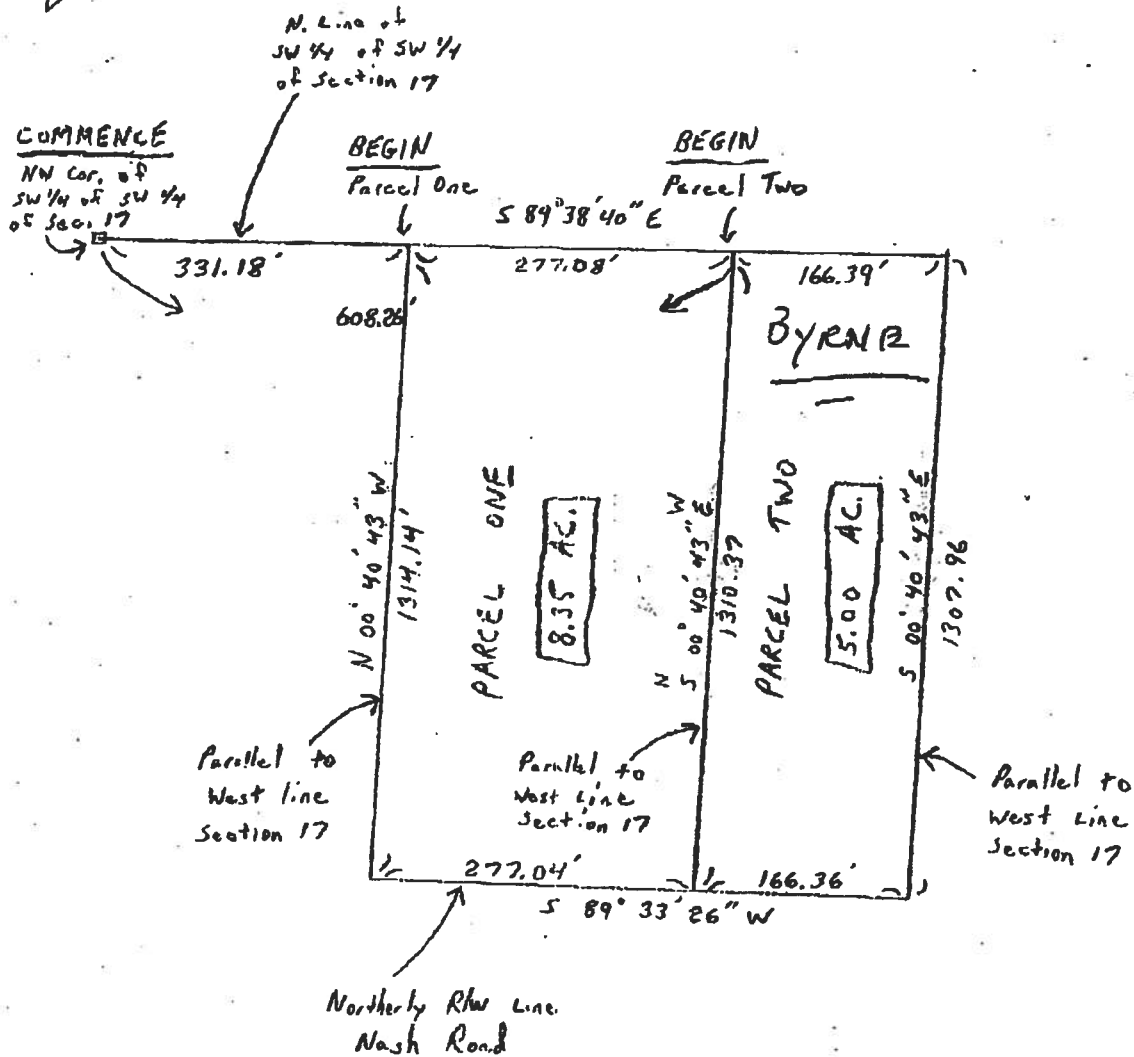 N. Line of
SW 1/4 of SW 1/4
of Section 17
COMMENCE
NW Cor. of
SW 1/4 of SW 1/4
of Sec. 17
BEGIN
Parcel One
BEGIN
Parcel Two
S 89° 38' 40" E
331.18'
277.08'
166.39'
608.26'
BYRNE
N 00° 40' 43" W
1314.14'
PARCEL ONE
8.35 AC.
N W
S 00° 40' 43" E
1310.37
PARCEL TWO
5.00 AC.
S 00° 40' 43" E
1307.96
Parallel to
West line
Section 17
Parallel to
West Line
Section 17
Parallel to
West Line
Section 17
277.04'
166.36'
S 89° 33' 26" W
Northerly R/W Line
Nash Road